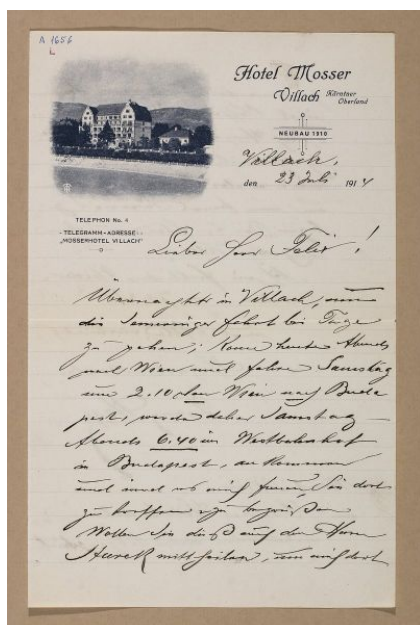 A 1656
L
Hotel Mosser
Villach Kärntner Oberland
NEUBAU 1910
Villach,
den 23 Juli 1914
TELEPHON No. 4
TELEGRAMM-ADRESSE:
„MOSSERHOTEL VILLACH"
Lieber Herr Felix!
Übernachte in Villach, um
die Semmeringer fahrt bei Tage
zu sehen; komme heute Abends
nach Wien und fahre Samstag
um 2.10 von Wien nach Buda
pest, werde daher Samstag
Abends 6.40 im Westbahnhof
in Budapest, ankommen
und wird es mich freuen, Sie dort
zu treffen u zu begrüßen
Wollen Sie dieß auch den Herrn
mittheilen, um mich dort